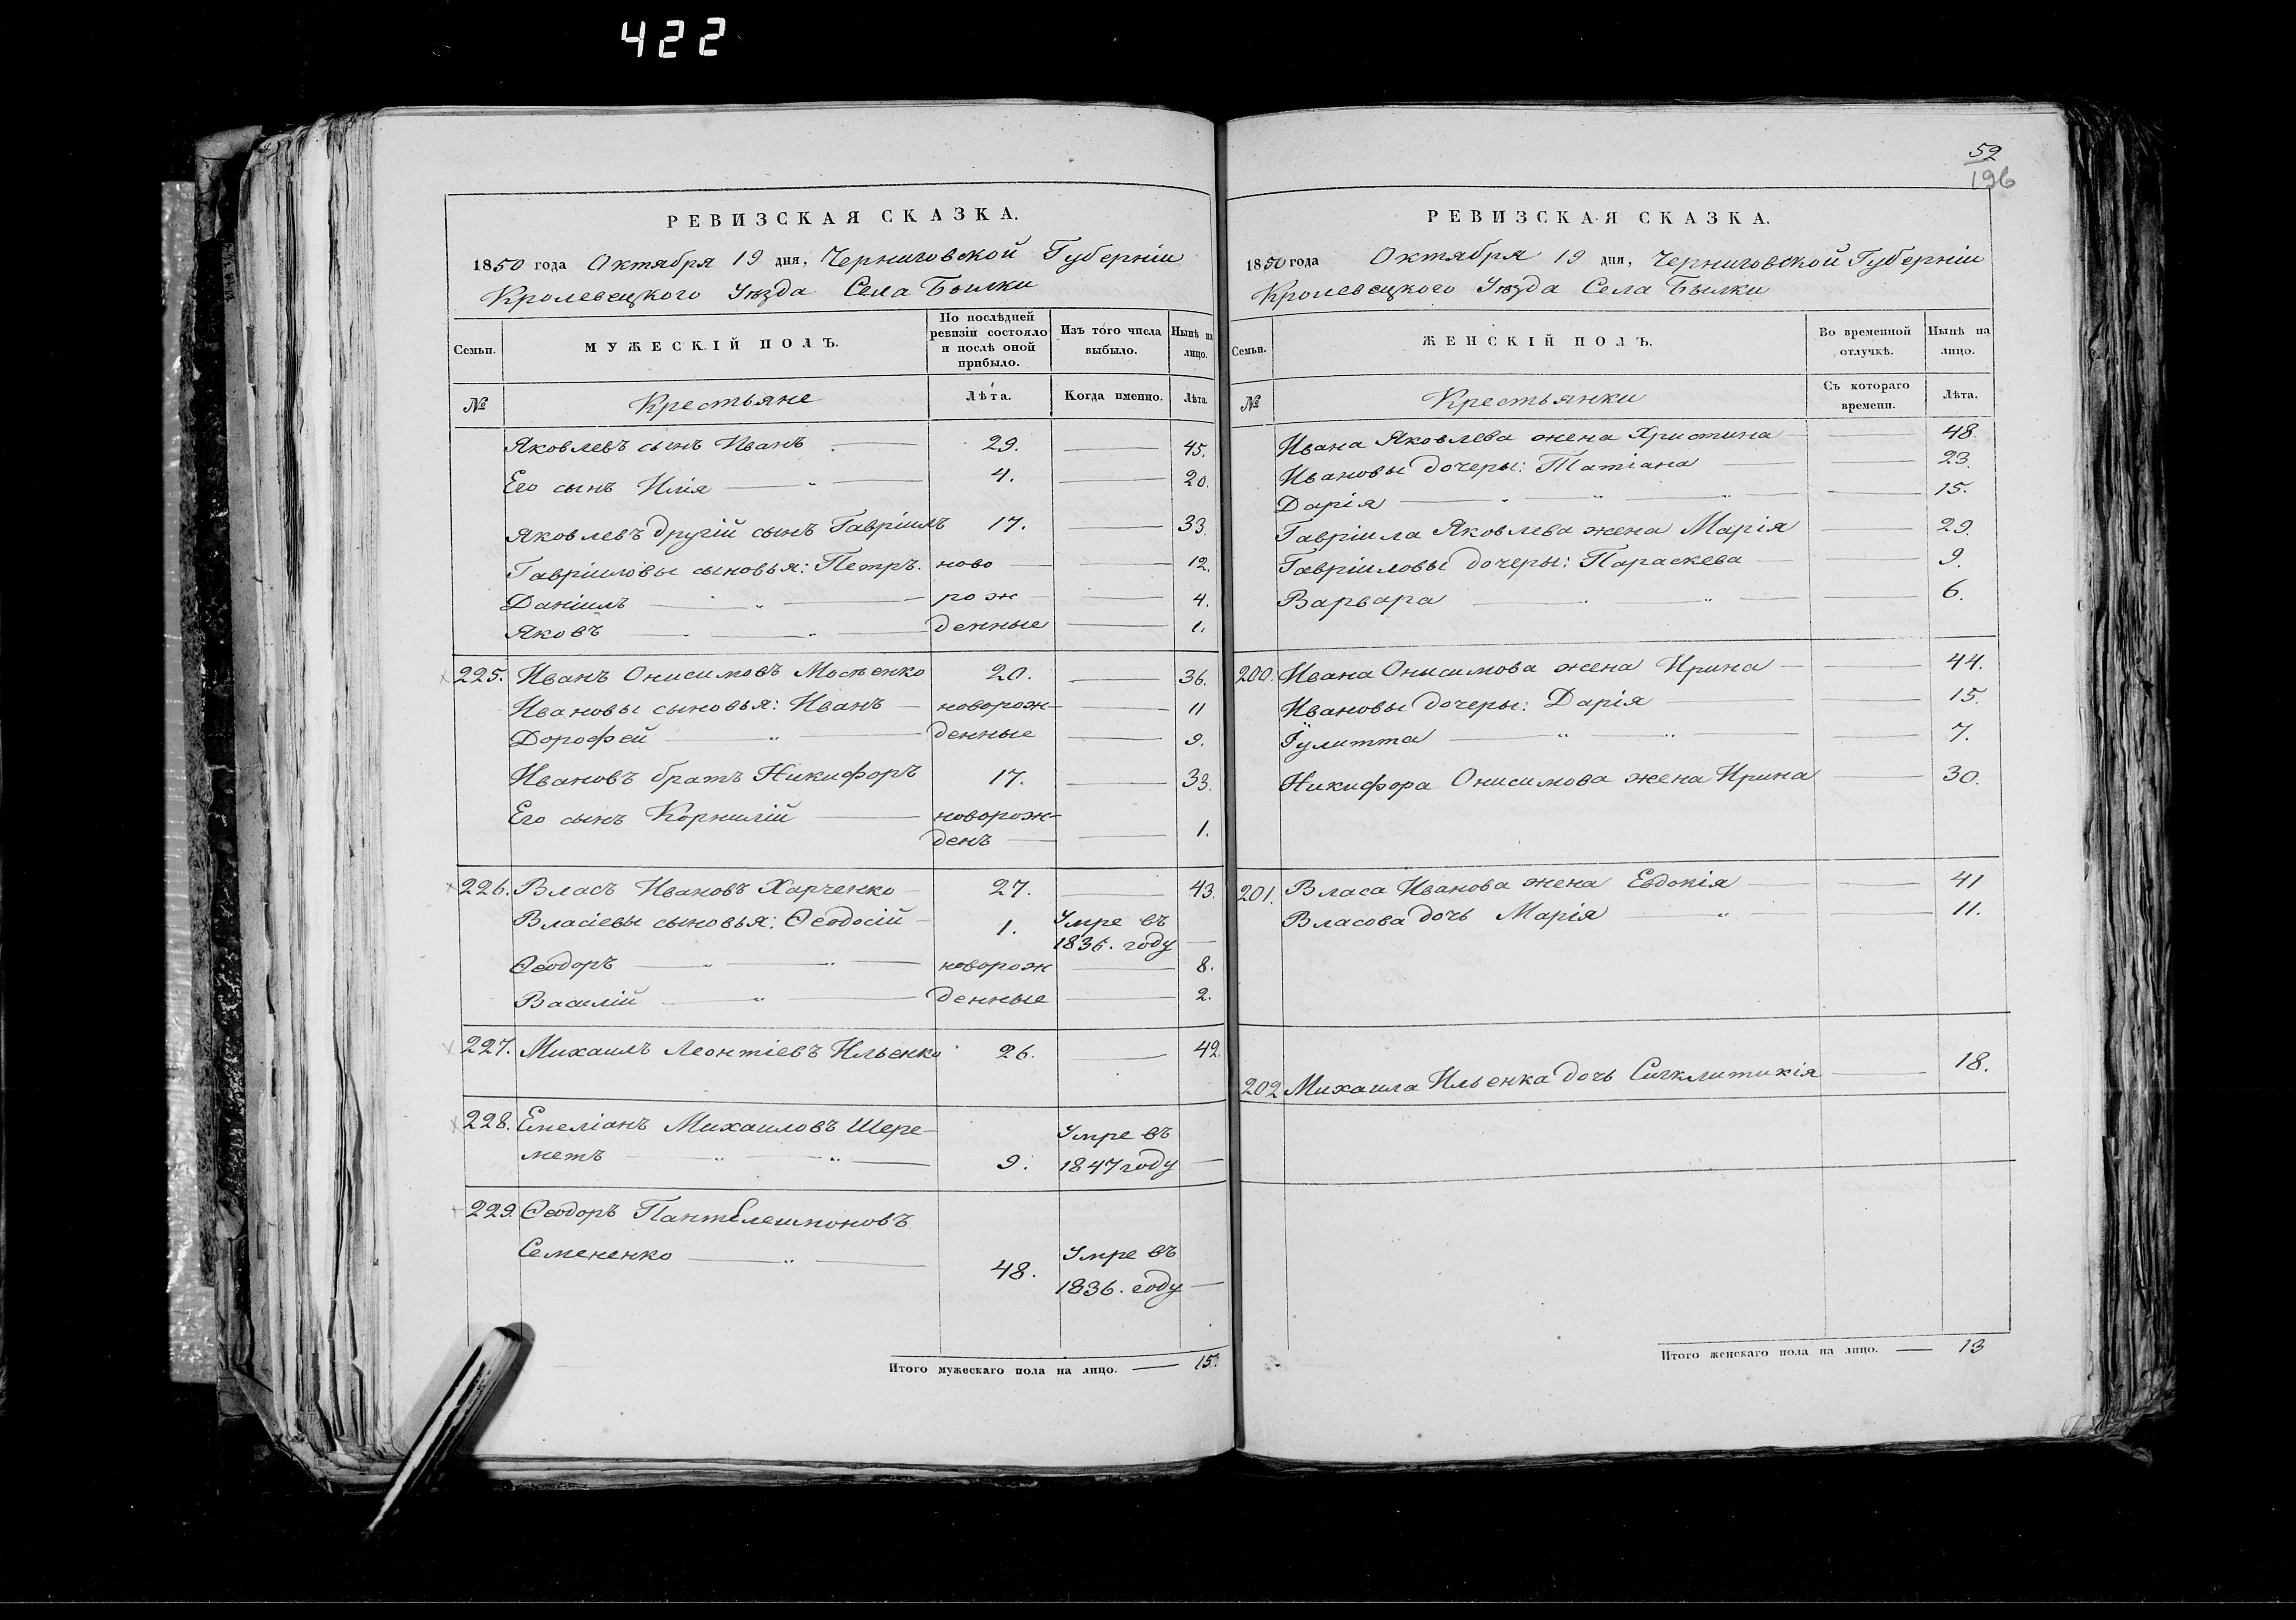 422
РЕВИЗСКАЯ СКАЗКА.
1850 года Октября 19 дня, Черниговской Губерніи
Кролевецкого Уѣзда Села Былки
Семьи.
МУЖЕСКІЙ ПОЛЪ.
По послѣдней ревизіи состояло и послѣ оной прибыло.
Изъ того числа выбыло.
Нынѣ на лицо.
№
Крестьяне
Лѣта.
Когда именно.
Лѣта.
Яковлевъ сынъ Иванъ 29. 45.
Его сынъ Илія 4. 20.
Яковлевъ другій сынъ Гавріилъ 17. 33.
Гавріиловы сыновья: Петръ. ново 12.
Даніилъ рож 4.
Яковъ денные 1.
225. Иванъ Онисимовъ 20. 36.
Ивановы сыновья: Иванъ новорож- 11
Дорофей денные 9.
Ивановъ братъ Никифоръ 17. 33.
Его сынъ Корнилій новорож-
денъ 1.
226. Власъ Ивановъ Харченко 27. 43.
Власіевы сыновья: Ѳеодосій 1. Умре въ
1836. году
Ѳеодоръ новорож 8.
Василій денные 2.
227. Михаилъ Леонтіевъ Ильенко 26. 42.
228. Емеліанъ Михаиловъ Шере-
Умре въ
метъ 9. 1847 году
229. Ѳеодоръ Пантелеимоновъ
Семененко 48. Умре въ
1836. году
Итого мужескаго пола на лицо. 15.
52
196
РЕВИЗСКАЯ СКАЗКА.
1850 года Октября 19 дня, Черниговской Губерніи
Кролевецкого Уѣзда Села Былки
Семьи.
ЖЕНСКІЙ ПОЛЪ.
Во временной отлучкѣ.
Нынѣ на лицо.
№
Крестьянки
Съ котораго времени.
Лѣта.
Ивана Яковлева жена Христина 48.
Ивановы дочеры: Татіана 23.
Дарія 15.
Гавріила Яковлева жена Марія 29.
Гавріиловы дочеры: Параскева 9.
Варвара 6.
200. Ивана Онисимова жена Ирина 44.
Ивановы дочеры: Дарія 15.
Їулитта 7.
Никифора Онисимова жена Ирина 30.
201. Власа Иванова жена Евдокія 41
Власова дочь Марія 11.
202 Михаила Ильенка дочь Сигклитикія 18.
Итого женскаго пола на лицо. 13